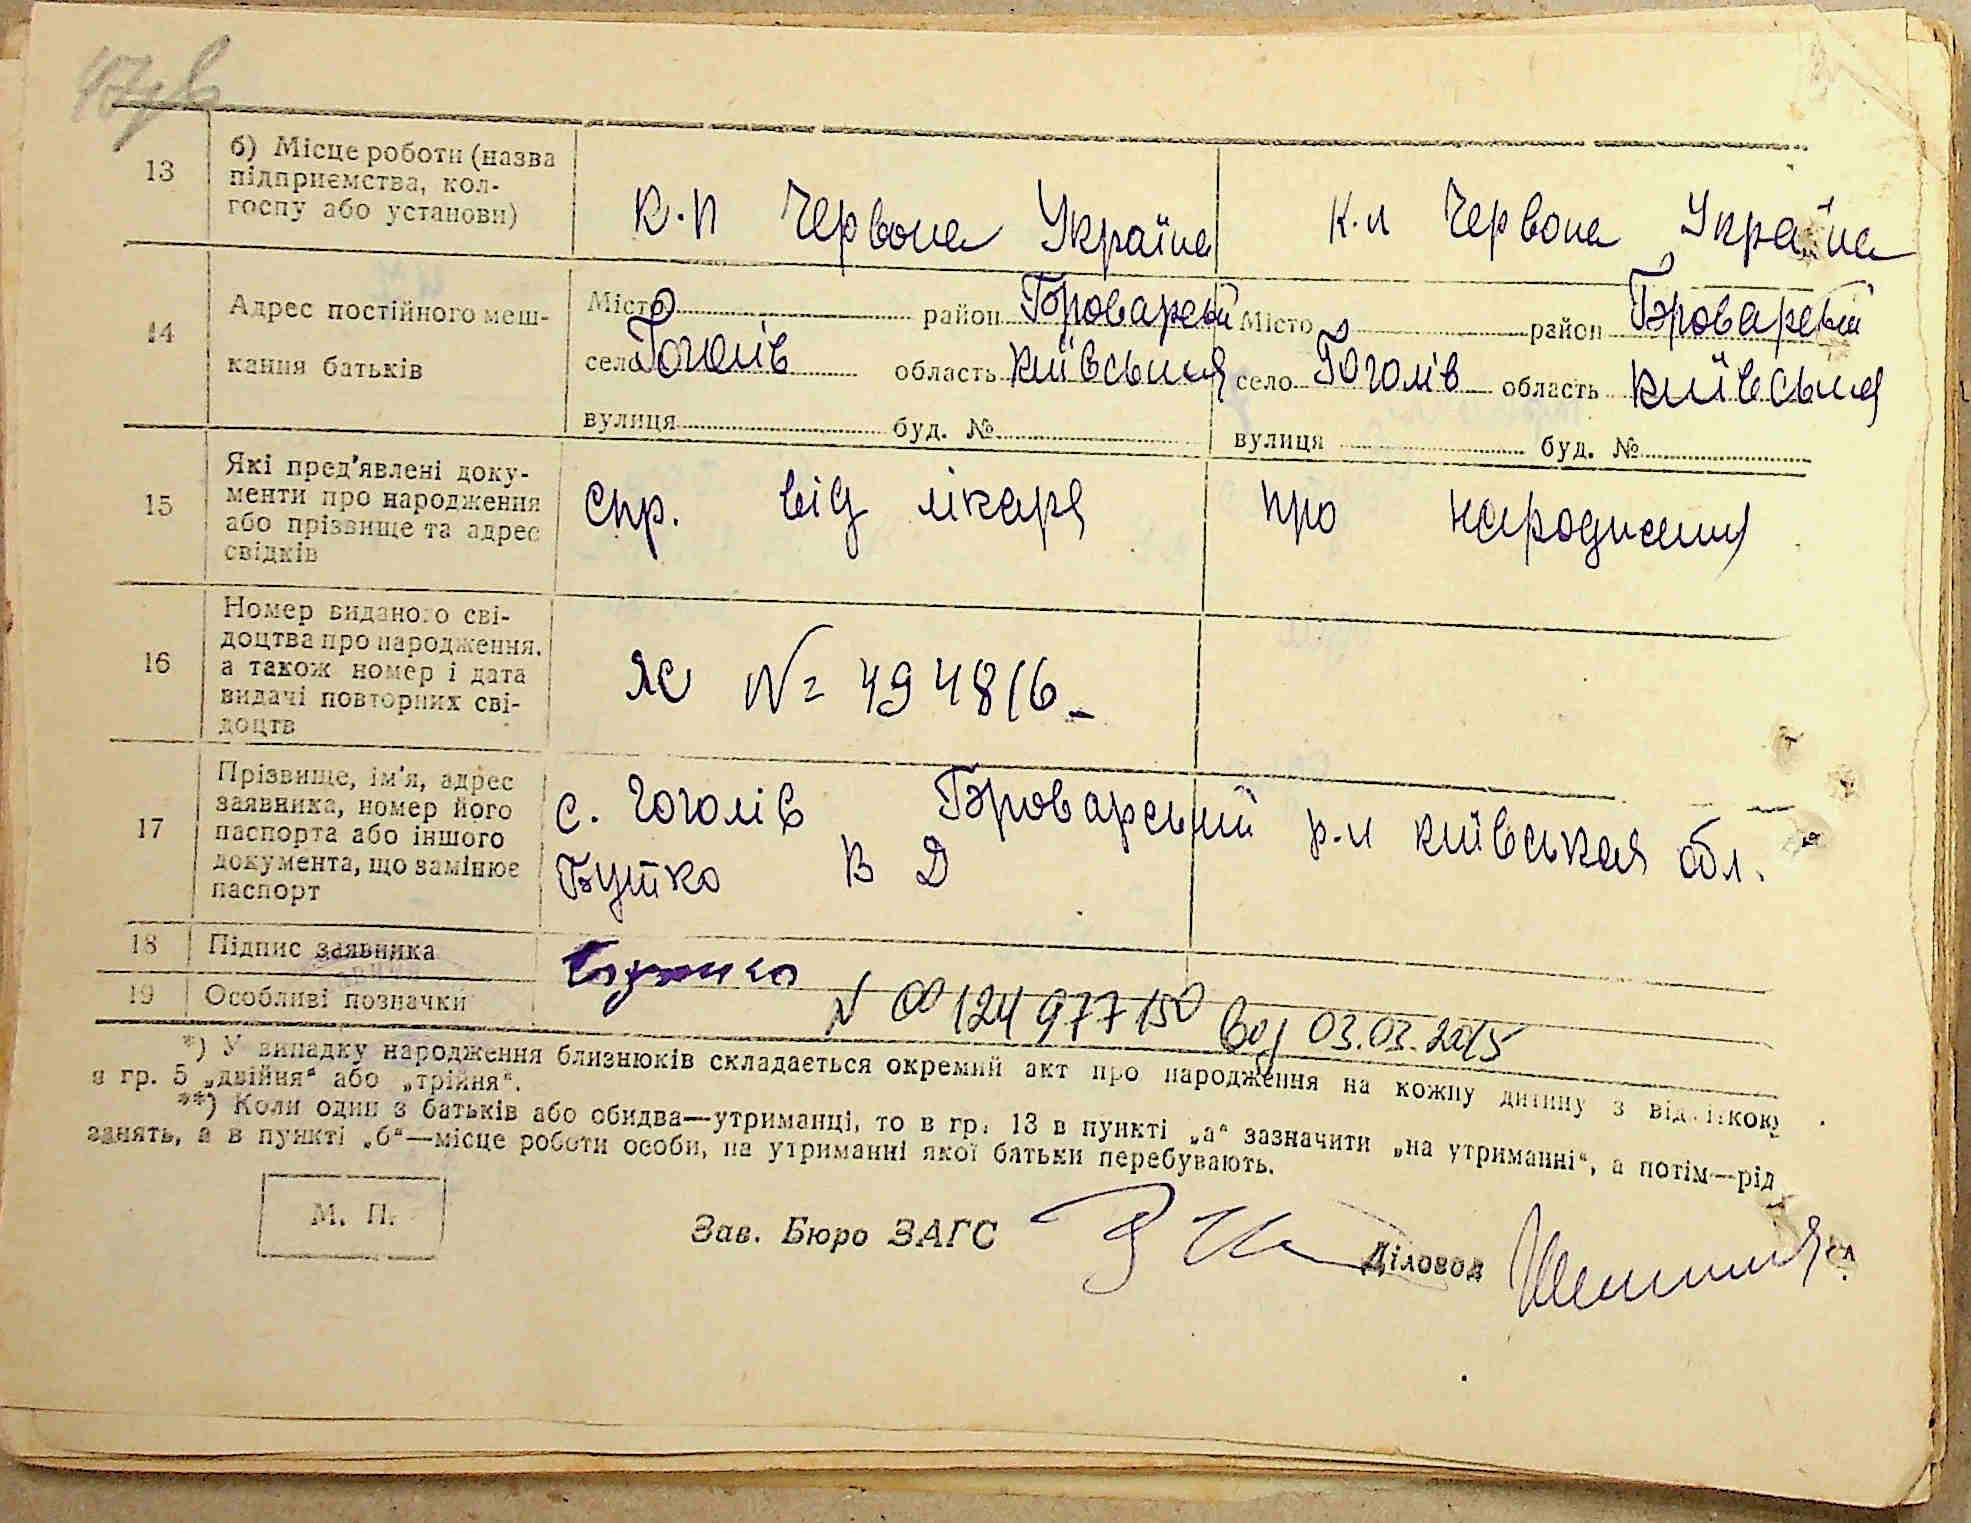 13
б) Місце роботи (назва
підприємства, кол-
госпу або установи)
к-п Червона Україна
к-п Червона Україна
14
Адрес постійного меш-
кання батьків
Місто район Броварськ
село Гоголів область Київська
вулиця буд. №
Місто район Броварськ
село Гоголів область Київська
вулиця буд. №
15
Які пред'явлені доку-
менти про народження
або прізвище та адрес
свідків
Спр. від лікаря про народження
16
Номер виданого сві-
доцтва про народження,
а також номер і дата
видачі повторних сві-
доцтв
ЯС № 494816
17
Прізвище, ім'я, адрес
заявника, номер його
паспорта або іншого
документа, що замінює
паспорт
с. Гоголів Броварський р-н Київська обл.
Бутко В Д
18
Підпис заявника
19
Особливі позначки
N 00124977150 від 03.03.2015
*) У випадку народження близнюків складається окремий акт про народження на кожну дитину з відміткою
в гр. 5 „двійня“ або „трійня“.
**) Коли один з батьків або обидва—утриманці, то в гр. 13 в пункті „а“ зазначити „на утриманні“, а потім—рід
занять, а в пункті „б“—місце роботи особи, на утриманні якої батьки перебувають.
М. П.
Зав. Бюро ЗАГС
Діловод